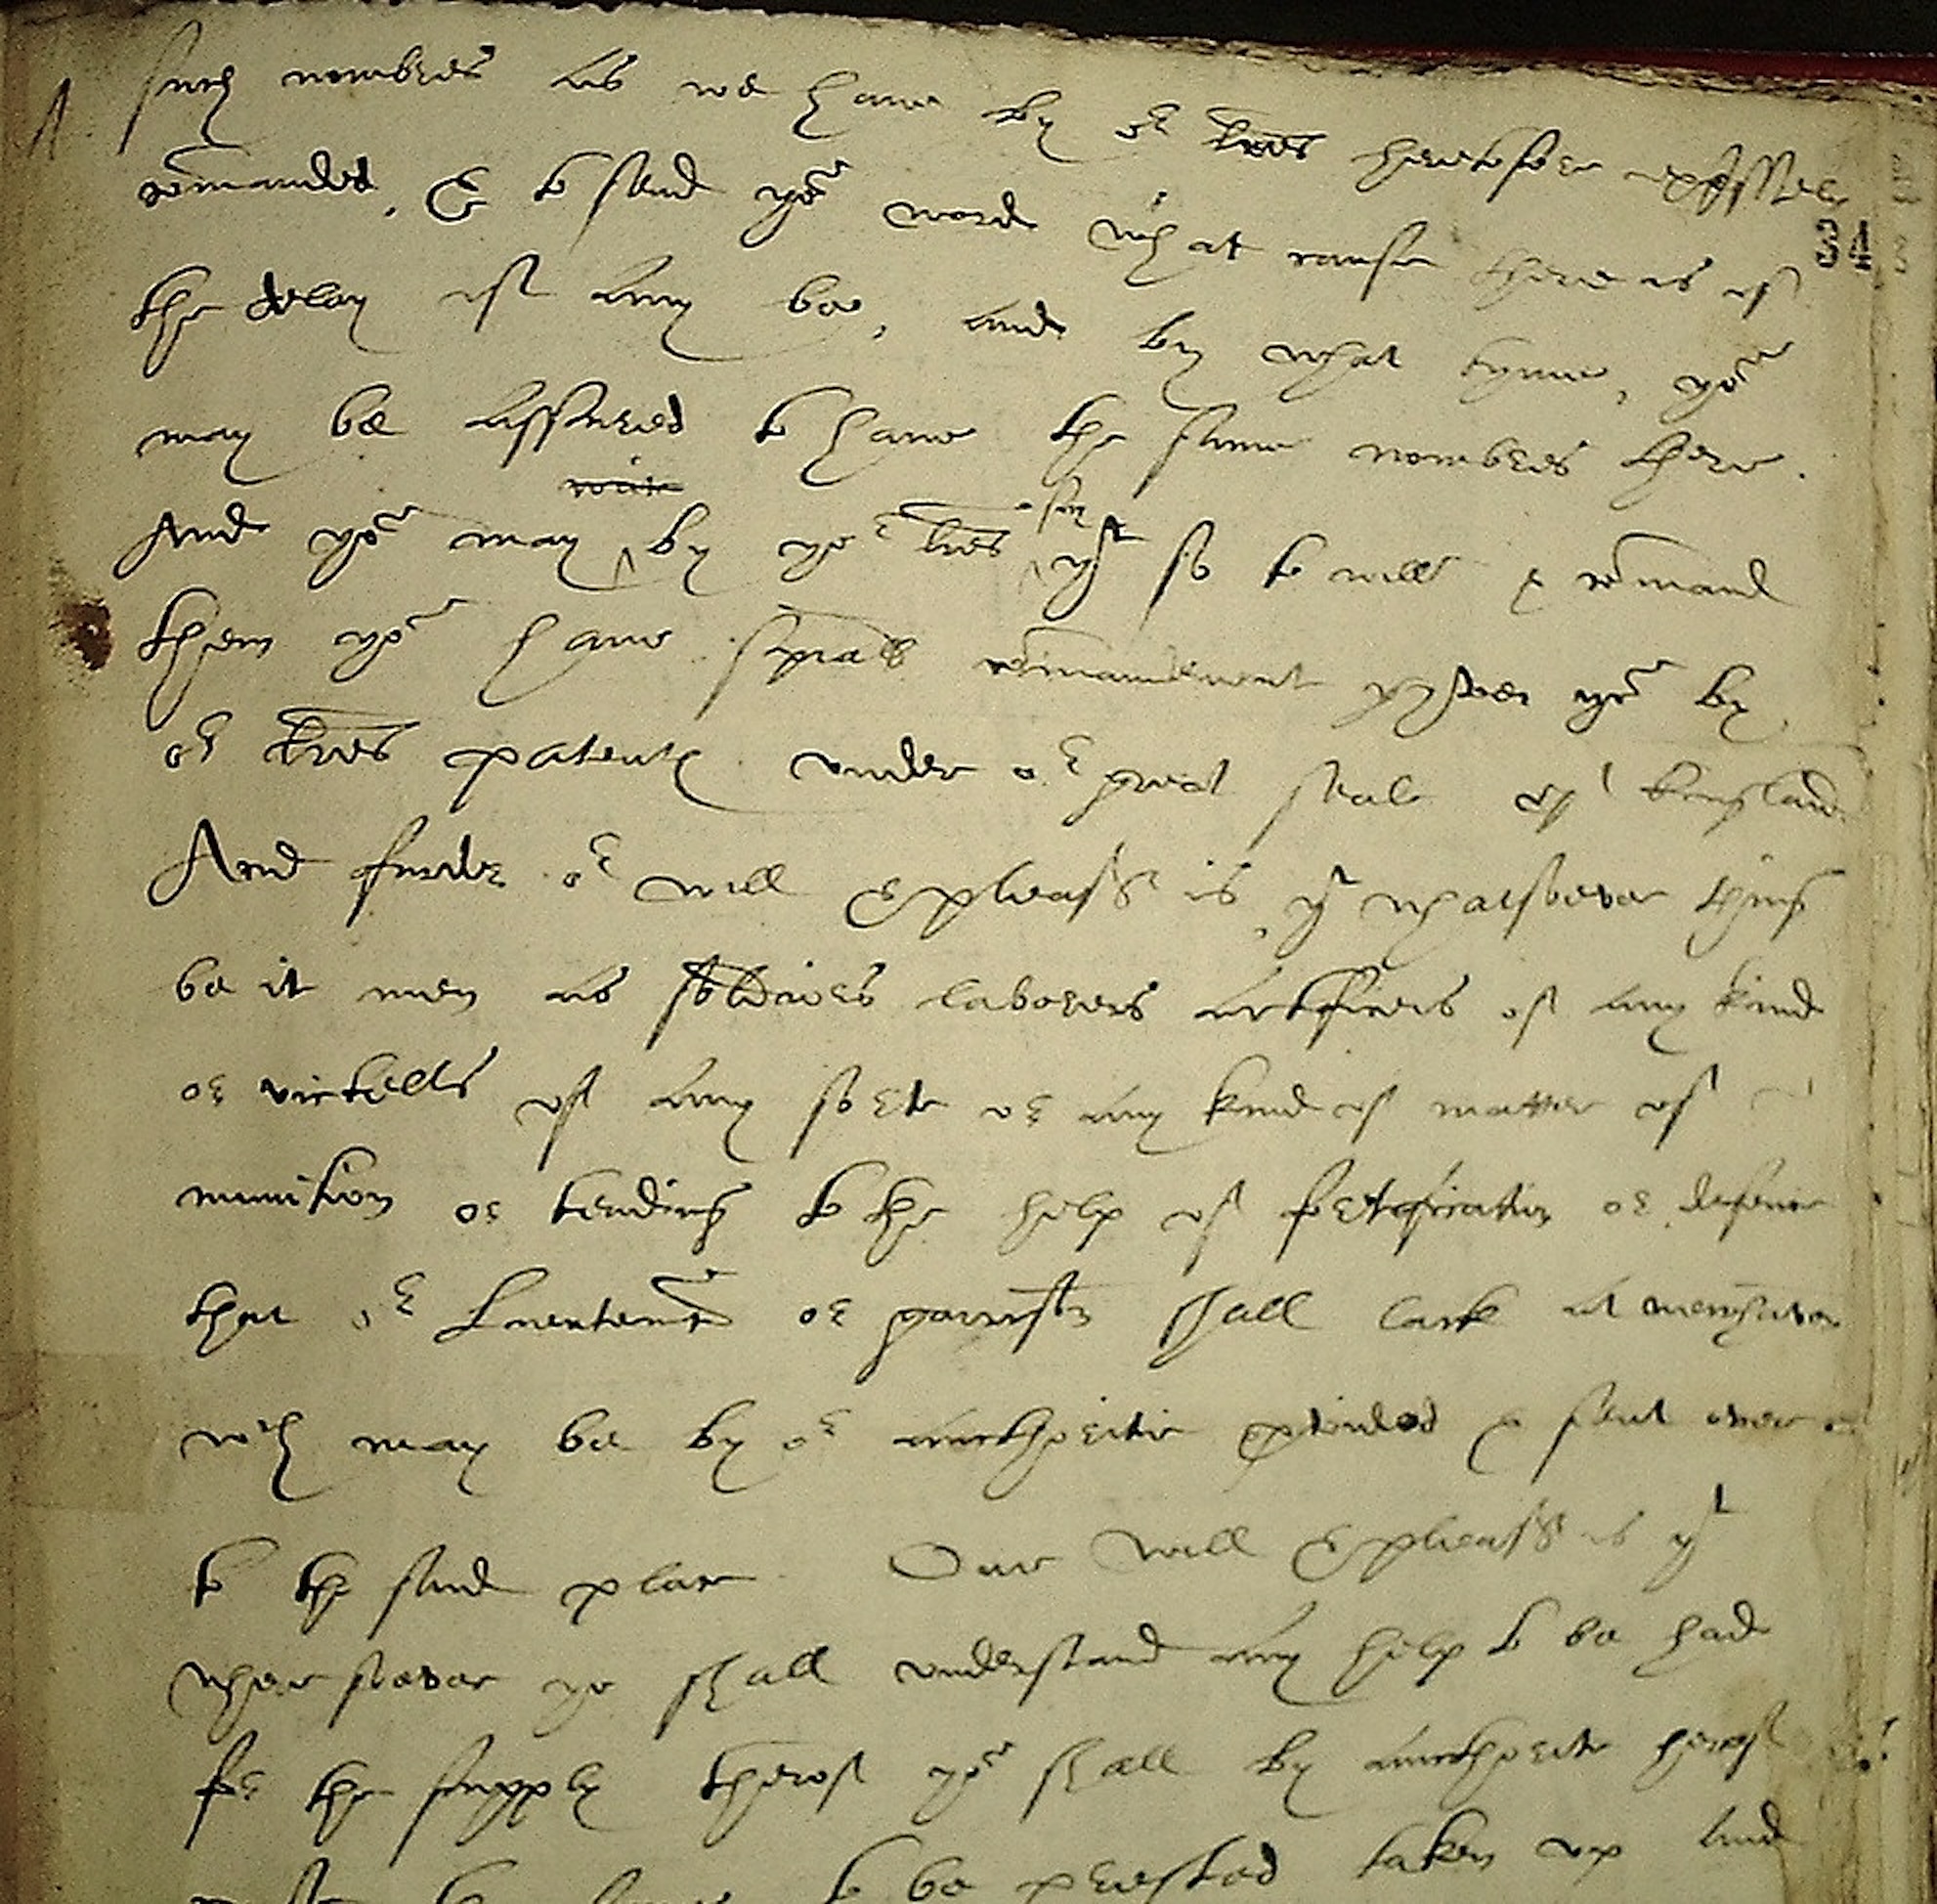 such nombres as we have by or lres heretofore expressly
comanded, & to send you word what cause there is of
34
the delay if any be, and by what tyme, you
may be assured to have the same nombres there.
write for
And you may by yor lres yt so to will & comand
them you have spall comandement gyven you by
or lres patents under or great seale of England
And furder or will & pleasr is, yt whatsoever thing
be it men as soldiors laborers artificers of any kind
or victells of any sort or any kind of matter of
munition or tending to the help of fortification or defence
that or Lieutenant or garrison shall lack at
wch may be by or aucthoritie & sent over
to the said place Our will & pleasr is yt
wher soever ye shall understand any help to be had
for the supply therof you shall by aucthorite herof
to be prested taken up and